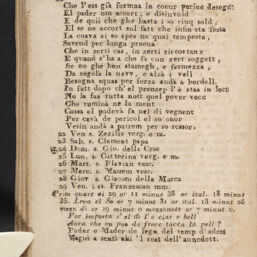 Che l'ess già forma in coeur parloe desegn
El pader om accort, e disinvold
E de qui che ghe basta i so cinq sold;
El se ne accort sul fatt che insi sta festa
La coava ai so spes na quai tempesta,
Savend per longa proeuva
Che in zerti cas, in zerti zircostanz
E quand s'ha a che fà con zert soggett,
Se no ghe bon stonegh, e fermezza,
Da regolà la navv, e alzà i vell
Besogna squas per forza andà a bordell.
In fatt dopo ch' el pronzep l'è staa in loco
No la faa tutta nott quel pover vecc
Che ruminà ne la ment
Cossa el podeva fà nel dì vegnent
Per cavà de pericol el so onor
Vesin andà a patrem per so rossor.
22 Ven s. Zezilia verg. e m.
23 Sab. s. Clement papa
24 Dom. s. Gio. della Cros
25 Lun. s. Catterina verg. e m.
26 Mart. s. Flavian vesc.
27 Merc. s. Massem vesc.
28 Giov s. Giacom della Marca
29 Ven. i ss. Franzescan mm.
Prim quart ai 29 or 21 minut 38 or ital. 18 minut
35. Leva el So or 7 minut 31 or ital. 15 minut 23
mezz dì or 19 minut 0 mezzanott or 7 minut 0.
Per imparta s'el dì E e ciar e bell
Anca che on poo de frecc tacca la pell?
Pader e Mader de legn del temp d'adess
Vegnì a sentì chì 'l rest dell'annedott.